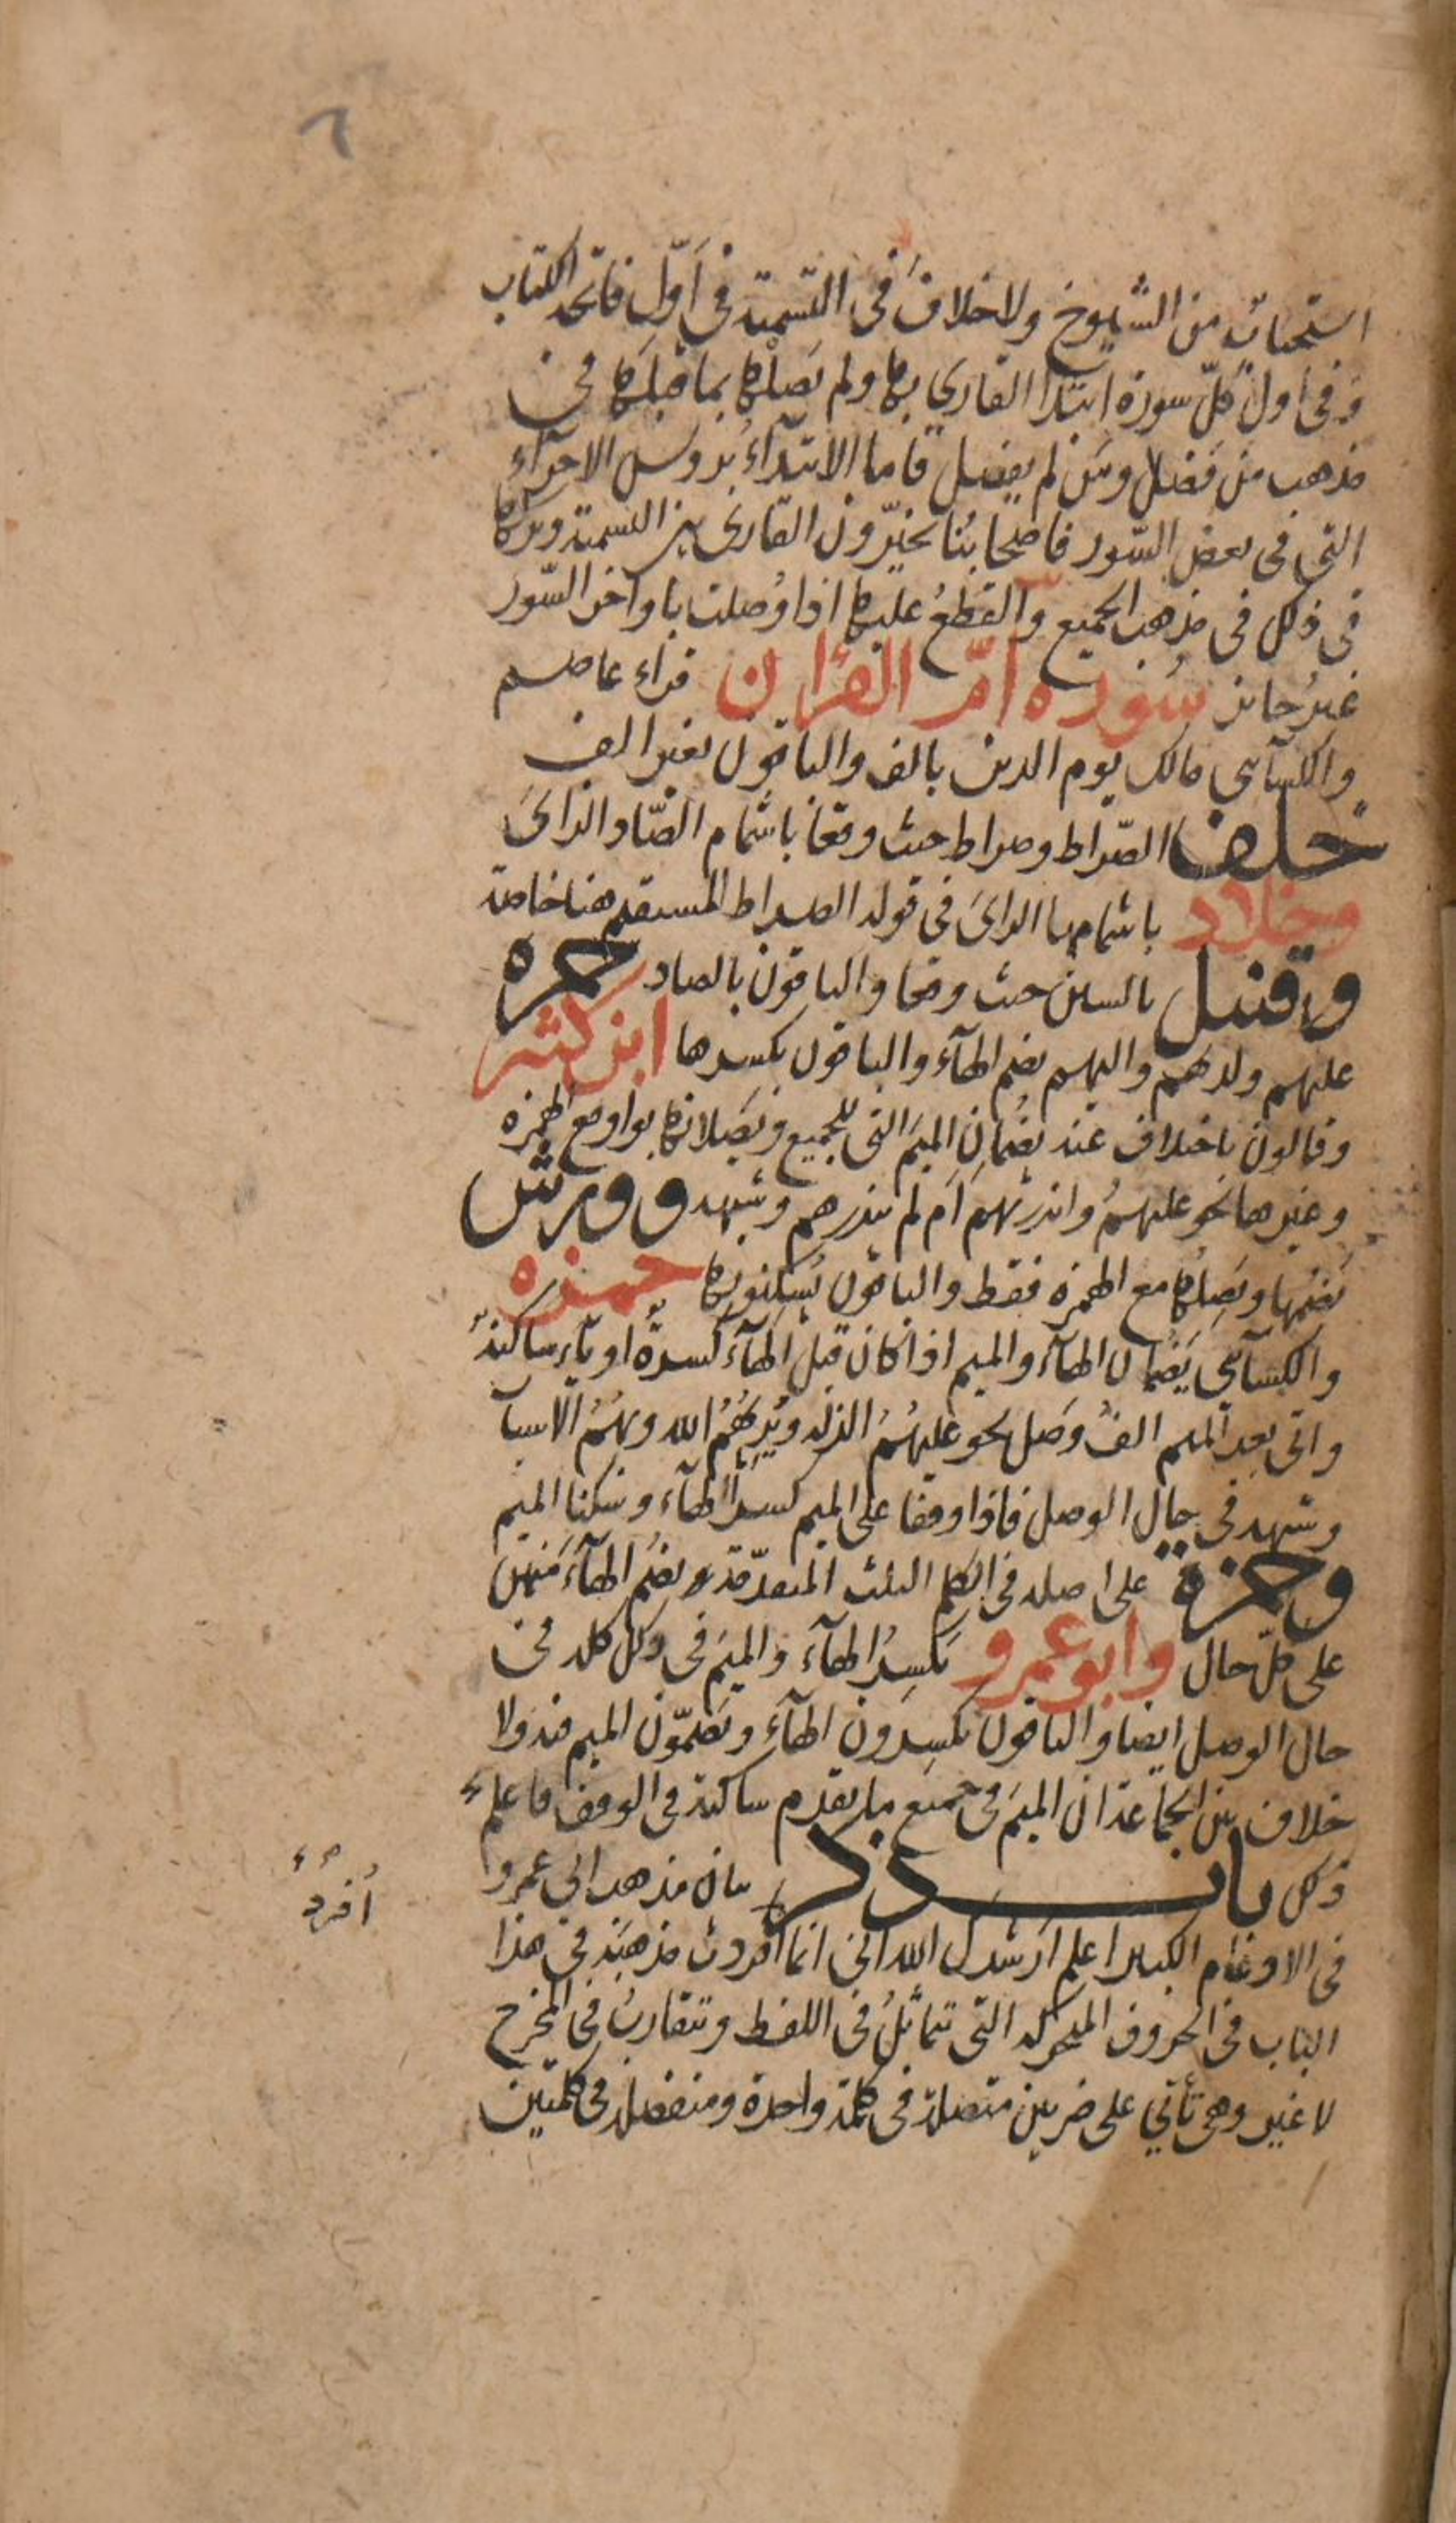 ٦
استحباب من الشيوخ ولا خلاف في التسمية في اوّل فاتحة الكتاب
وفي اول كلّ سورة ابتدا القاري بها ولم يَصلها بما قبلها في
مذهب من فَصَل ومَن لم يفصل فاما الابتدآءُ برؤس الاجزآء
التي في بعض السّور فاصحابُنا يخيّرون القاري بين التسمية وتركها
في ذلك في مذهب الجميع والقطعُ عليها اذا وُصلت باواخر السّور
غيرُ جائز سورة امّ القران قراء عاصم
والكسآئي مالك يوم الدين بالف والباقون بغير الف
خلف الصّراط وصراط حيث وقعا باشمام الصّاد الزايَ
وخلاد باشمامها الزايَ في قوله الصراط المستقيم هنا خاصة
وقنبل بالسين حيث وقعا والباقون بالصاد حمزة
عليهم ولديهم واليهم بضم الهآء والباقون بكسرها ابن كثير
وقالون باختلاف عنه يضُمان الميمَ التي للجميع ويَصلانها بواو مع الهمزة
وغيرها نحو عليهمُ وانذرتهم اَم لم تنذرهم وشبهه وورش
يَضمّها ويَصِلُها مع الهمزة فقط والباقون يُسكنونها حمزة
والكسآئي يَضُمان الهآءَ والميم اذا كان قبل الهآء كسرةٌ او يآءٌ ساكنةٌ
واتى بعد الميم الفُ وَصل نحو عليهُمُ الذلة ويُريهُمُ الله وبهُمُ الاسبا
وشبهه في حال الوصل فاذا وقفا على الميم كسرا الهآء وسكنا الميم
وحمزة على اصله في الكلم الثلث المتقدّمة وبضم الهآءَ منهن
على كلّ حال وابو عمرو بكسِرُ الهآءَ والميمَ في ذلك كله في
حال الوصل ايضا والباقون يكسِرون الهآء ويَضمّون الميم فيه ولا
خلاف بين الجماعة ان الميمَ في جميع ما تقدم ساكنة في الوقف فاعلم
ذلك باب ذكر بيان مذهب ابي عمرو
في الادغام الكبير اعلم ارَشدكَ الله اني انما افردت مذهبَه في هذا
الباب في الحروف المتحركة التي تتماثَلُ في اللفظ وتتقاربُ في المخرج
لا غير وهي تأتي على ضربين متصلة في كلمة واحدة ومنفصلة في كلمتين
اُفردُ